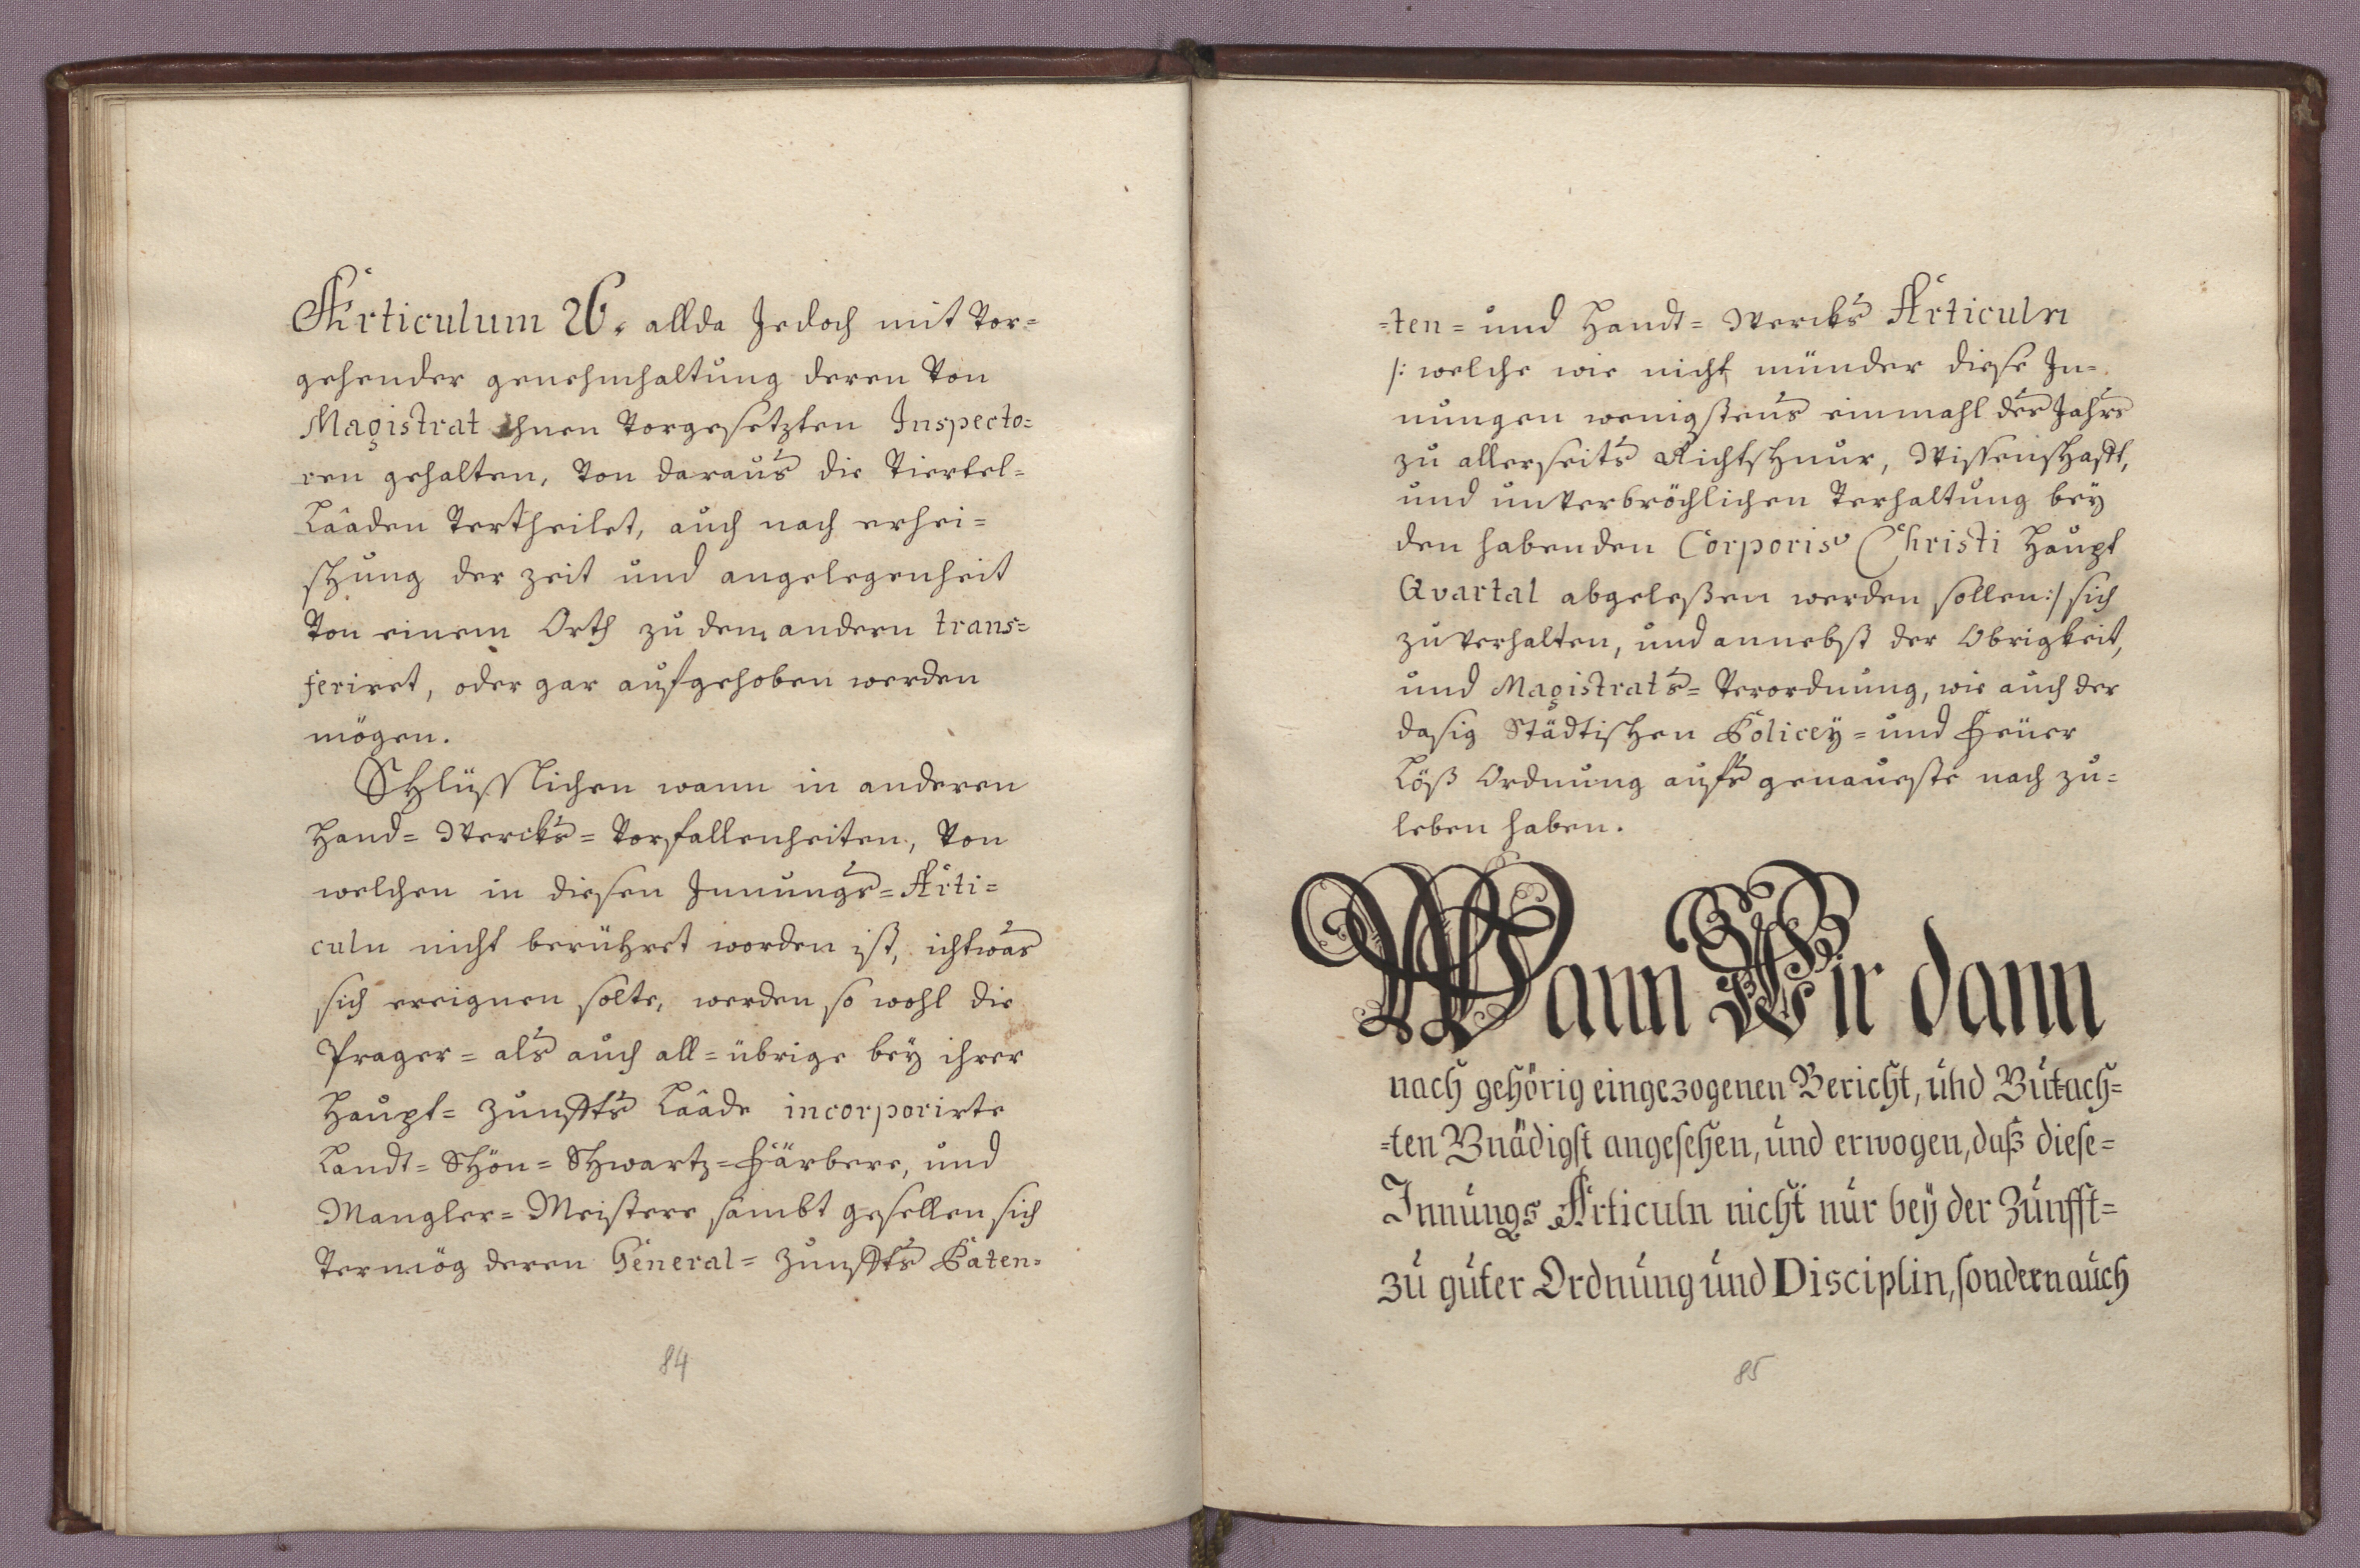 Articulum 26. allda Jedoch mit Vor=
gehender genehmhaltung deren Von
Magistrat Ihnen Vorgesetzten Inspecto=
ren gehalten, Von daraus die Viertel=
Laaden Vertheilet, auch nach erhei=
schung der zeit und angelegenheit
Von einem Orth zu dem andern trans=
feriret, oder gar aufgehoben werden
mögen.
Schlüsslichen wann in anderen
Hand= Wercks= Vorfallenheiten, Von
welchen in diesen Innungs= Arti=
culn nicht berühret worden ist, ichtwas
sich ereignen solte, werden so wohl die
Prager= als auch all= übrige bey ihrer
Haupt= Zunffts Laade incorporirte
Landt= Schön= Schwartz= Färbere, und
Mangler= Meistere sambt gesellen sich
Vermög deren General= Zunffts Paten=
84
=ten= und Handt= Wercks Articuln
/: welche wie nicht münder diese In=
nungen wenigstens einmahl des Jahrs
zu allerseits Richtschnur, Wissenschafft,
und unverbröchlichen Verhaltung bey
den habenden Corporis Christi Haupt
Qvartal abgeleßen werden sollen:/ sich
zu verhalten, und annebst der Obrigkeit,
und Magistrats= Verordnung, wie auch der
dasig Städtischen Policey= und Feüer
Löß Ordnung aufs genaueste nach zu=
leben haben.
Wann Wir dann
nach gehörig eingezogenen Bericht, und Gutach=
=ten Gnädigst angesehen, und erwogen, daß diese=
Innungs Articuln nicht nur bey der Zunfft=
zu guter Ordnung und Disciplin, sondern auch
85